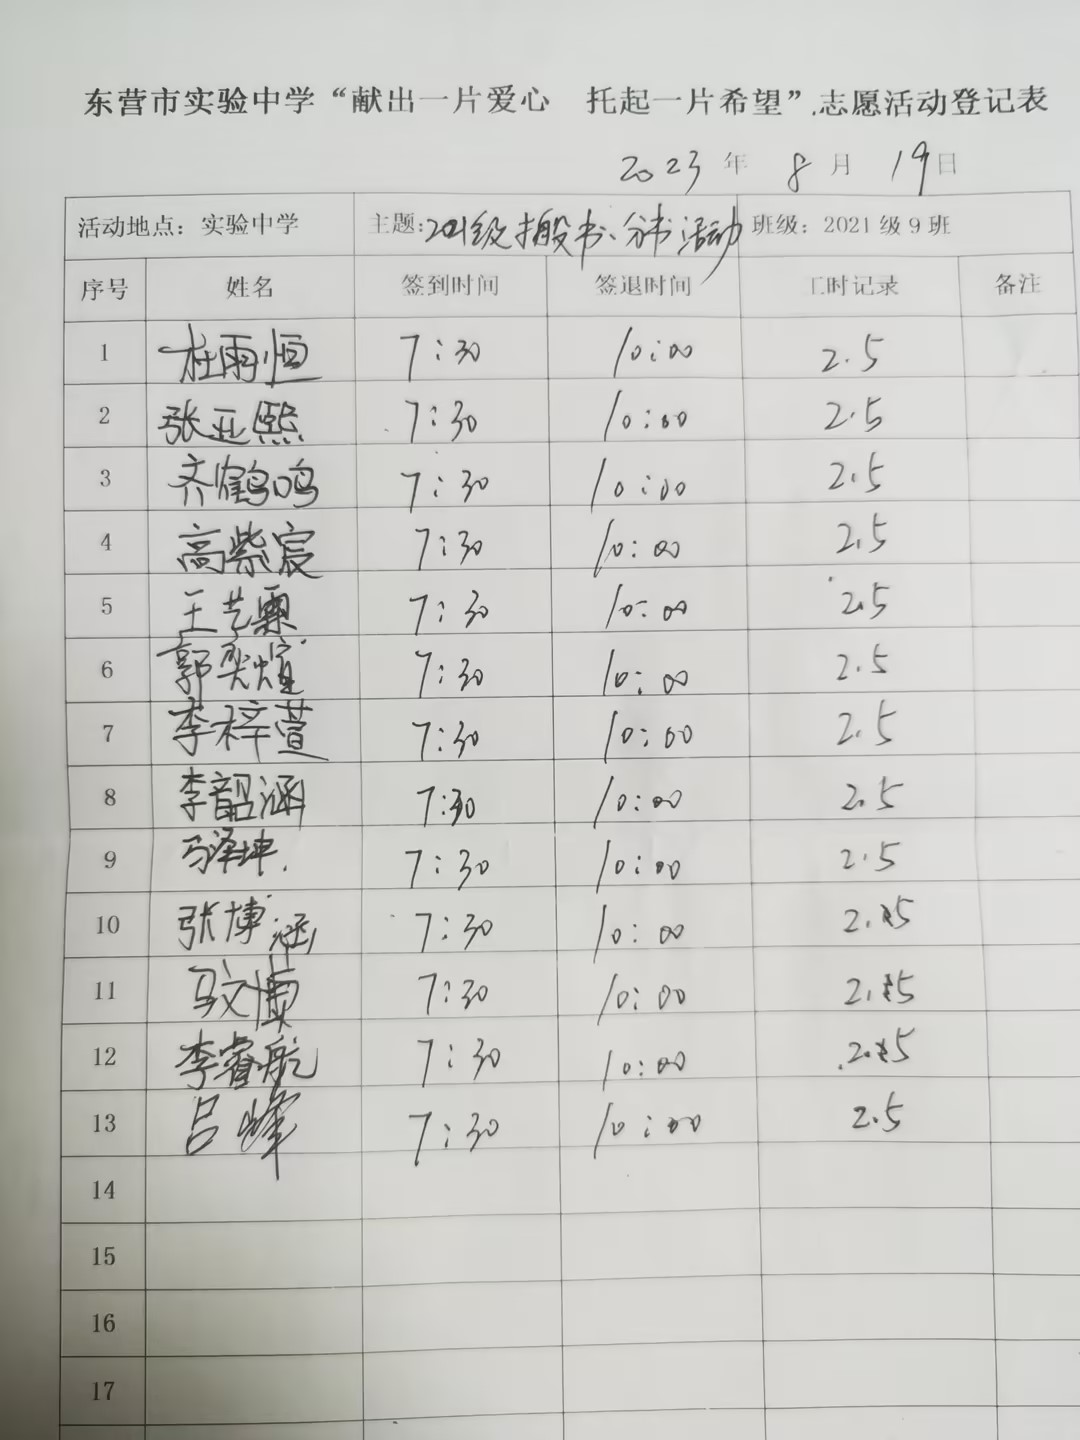 东营市实验中学“献出一片爱心 托起一片希望”.志愿活动登记表
2023 年 8 月 19 日
活动地点：实验中学 主题：2021级搬书、分书活动 班级：2021 级 9 班
序号 姓名 签到时间 签退时间 工时记录 备注
1 杜雨恒 7:30 10:00 2.5
2 张亚熙 7:30 10:00 2.5
3 齐鹤鸣 7:30 10:00 2.5
4 高紫宸 7:30 10:00 2.5
5 王艺霖 7:30 10:00 2.5
6 郭奕煊 7:30 10:00 2.5
7 李梓萱 7:30 10:00 2.5
8 李韶涵 7:30 10:00 2.5
9 马泽坤 7:30 10:00 2.5
10 张博涵 7:30 10:00 2.5
11 马文博 7:30 10:00 2.5
12 李睿航 7:30 10:00 2.5
13 吕峰 7:30 10:00 2.5
14
15
16
17